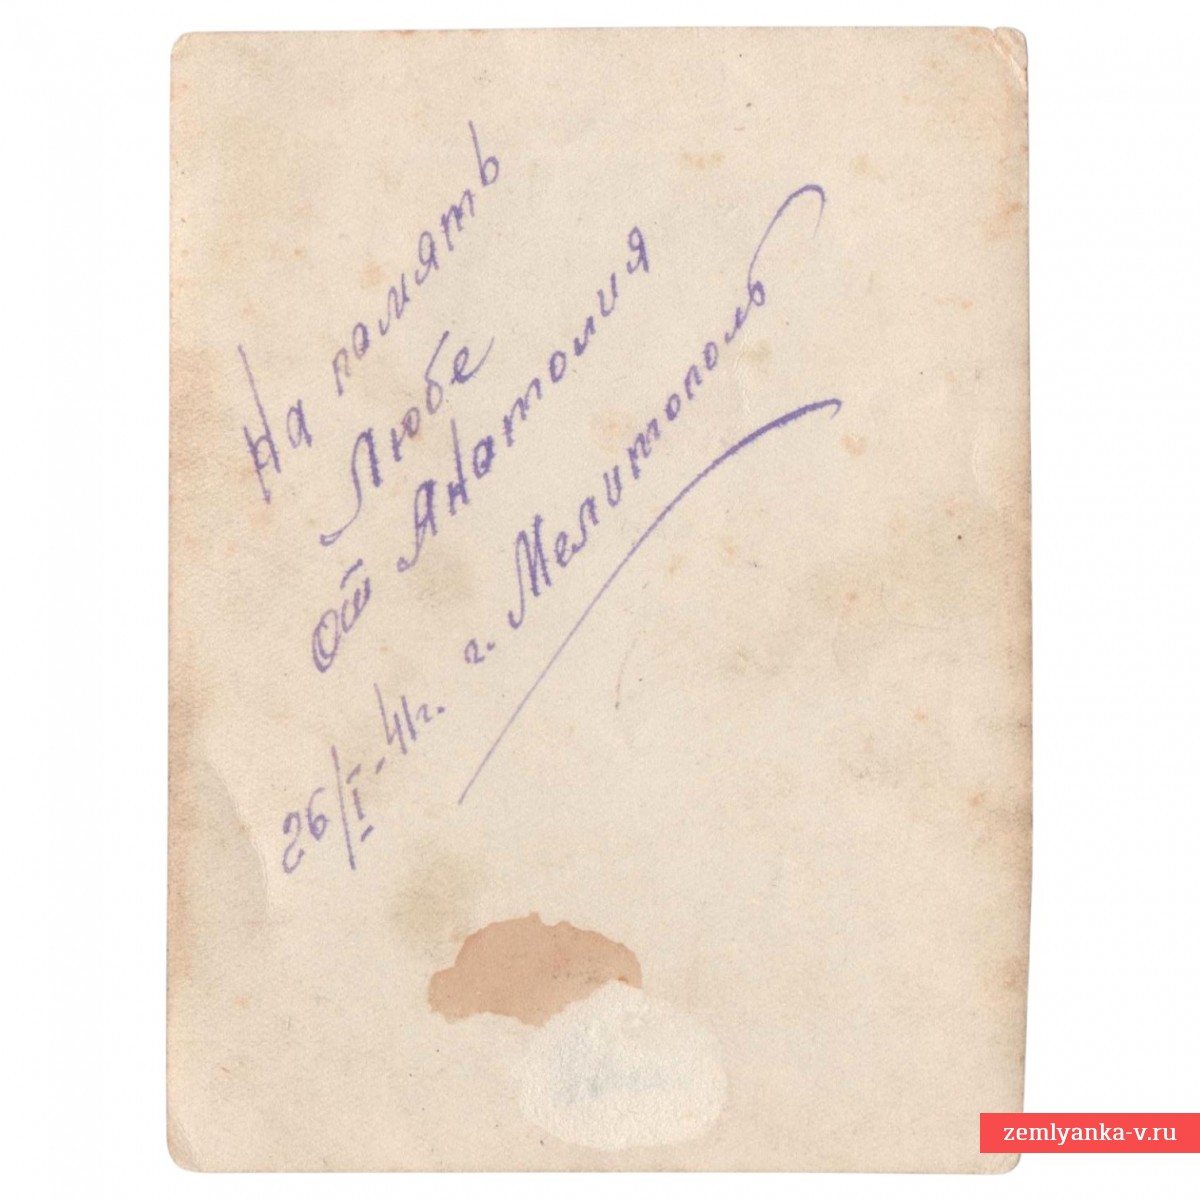 На память
Любе
от Анатолия
26/I-41г. г. Мелитополь
zemlyanka-v.ru